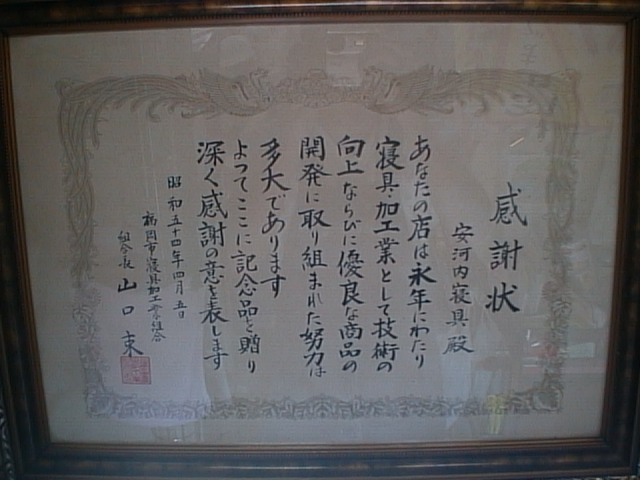 感謝状
安河内寝具殿
あなたの店は永年にわたり
寝具加工業として技術の
向上ならびに優良な商品の
開発に取り組まれた努力は
多大であります
よってここに記念品を贈り
深く感謝の意を表します
昭和五十四年四月五日
福岡市寝具加工業組合
組合長 山口東